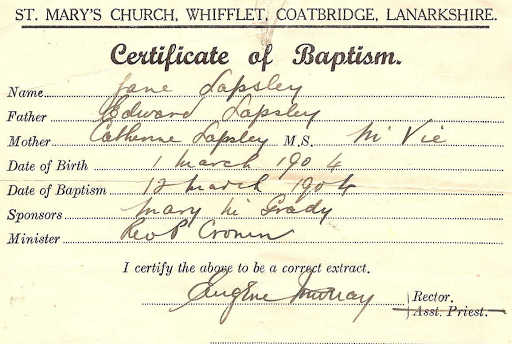 ST. MARY'S CHURCH, WHIFFLET, COATBRIDGE, LANARKSHIRE.
Certificate of Baptism.
Name Jane Lapsley
Father Edward Lapsley
Mother Catherine Lapsley M.S. Mc Vie
Date of Birth 1 March 1904
Date of Baptism 12 March 1904
Sponsors Mary Mc Grady
Minister Rev P Cronin
I certify the above to be a correct extract.
Eugene Murray Rector.
Asst. Priest.